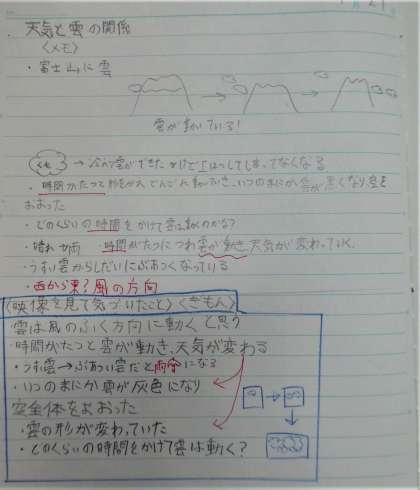 天気と雲の関係
〈メモ〉
・富士山に雲
雲が動いている!
くも → 雲ができた
・時間がたつと形をかえ、どんどん動いていき、いつのまにか雲が黒くなり空を
おおった
・どのくらいの時間をかけて雲は動くのかな?
・晴れ 雨 時間がたつにつれ雲が動き、天気が変わっていく。
・うすい雲からしだいにぶあつくなっている
・西から東?風の方向
〈映像を見て気づいたこと〉〈ぎもん〉
・雲は風のふく方向に動くと思う
・時間がたつと雲が動き、天気が変わる
・うす雲→ぶあつい雲だと雨雲になる
・いつのまにか雲が灰色になり
空全体をおおった
・雲の形が変わっていた
・どのくらいの時間をかけて雲は動く?